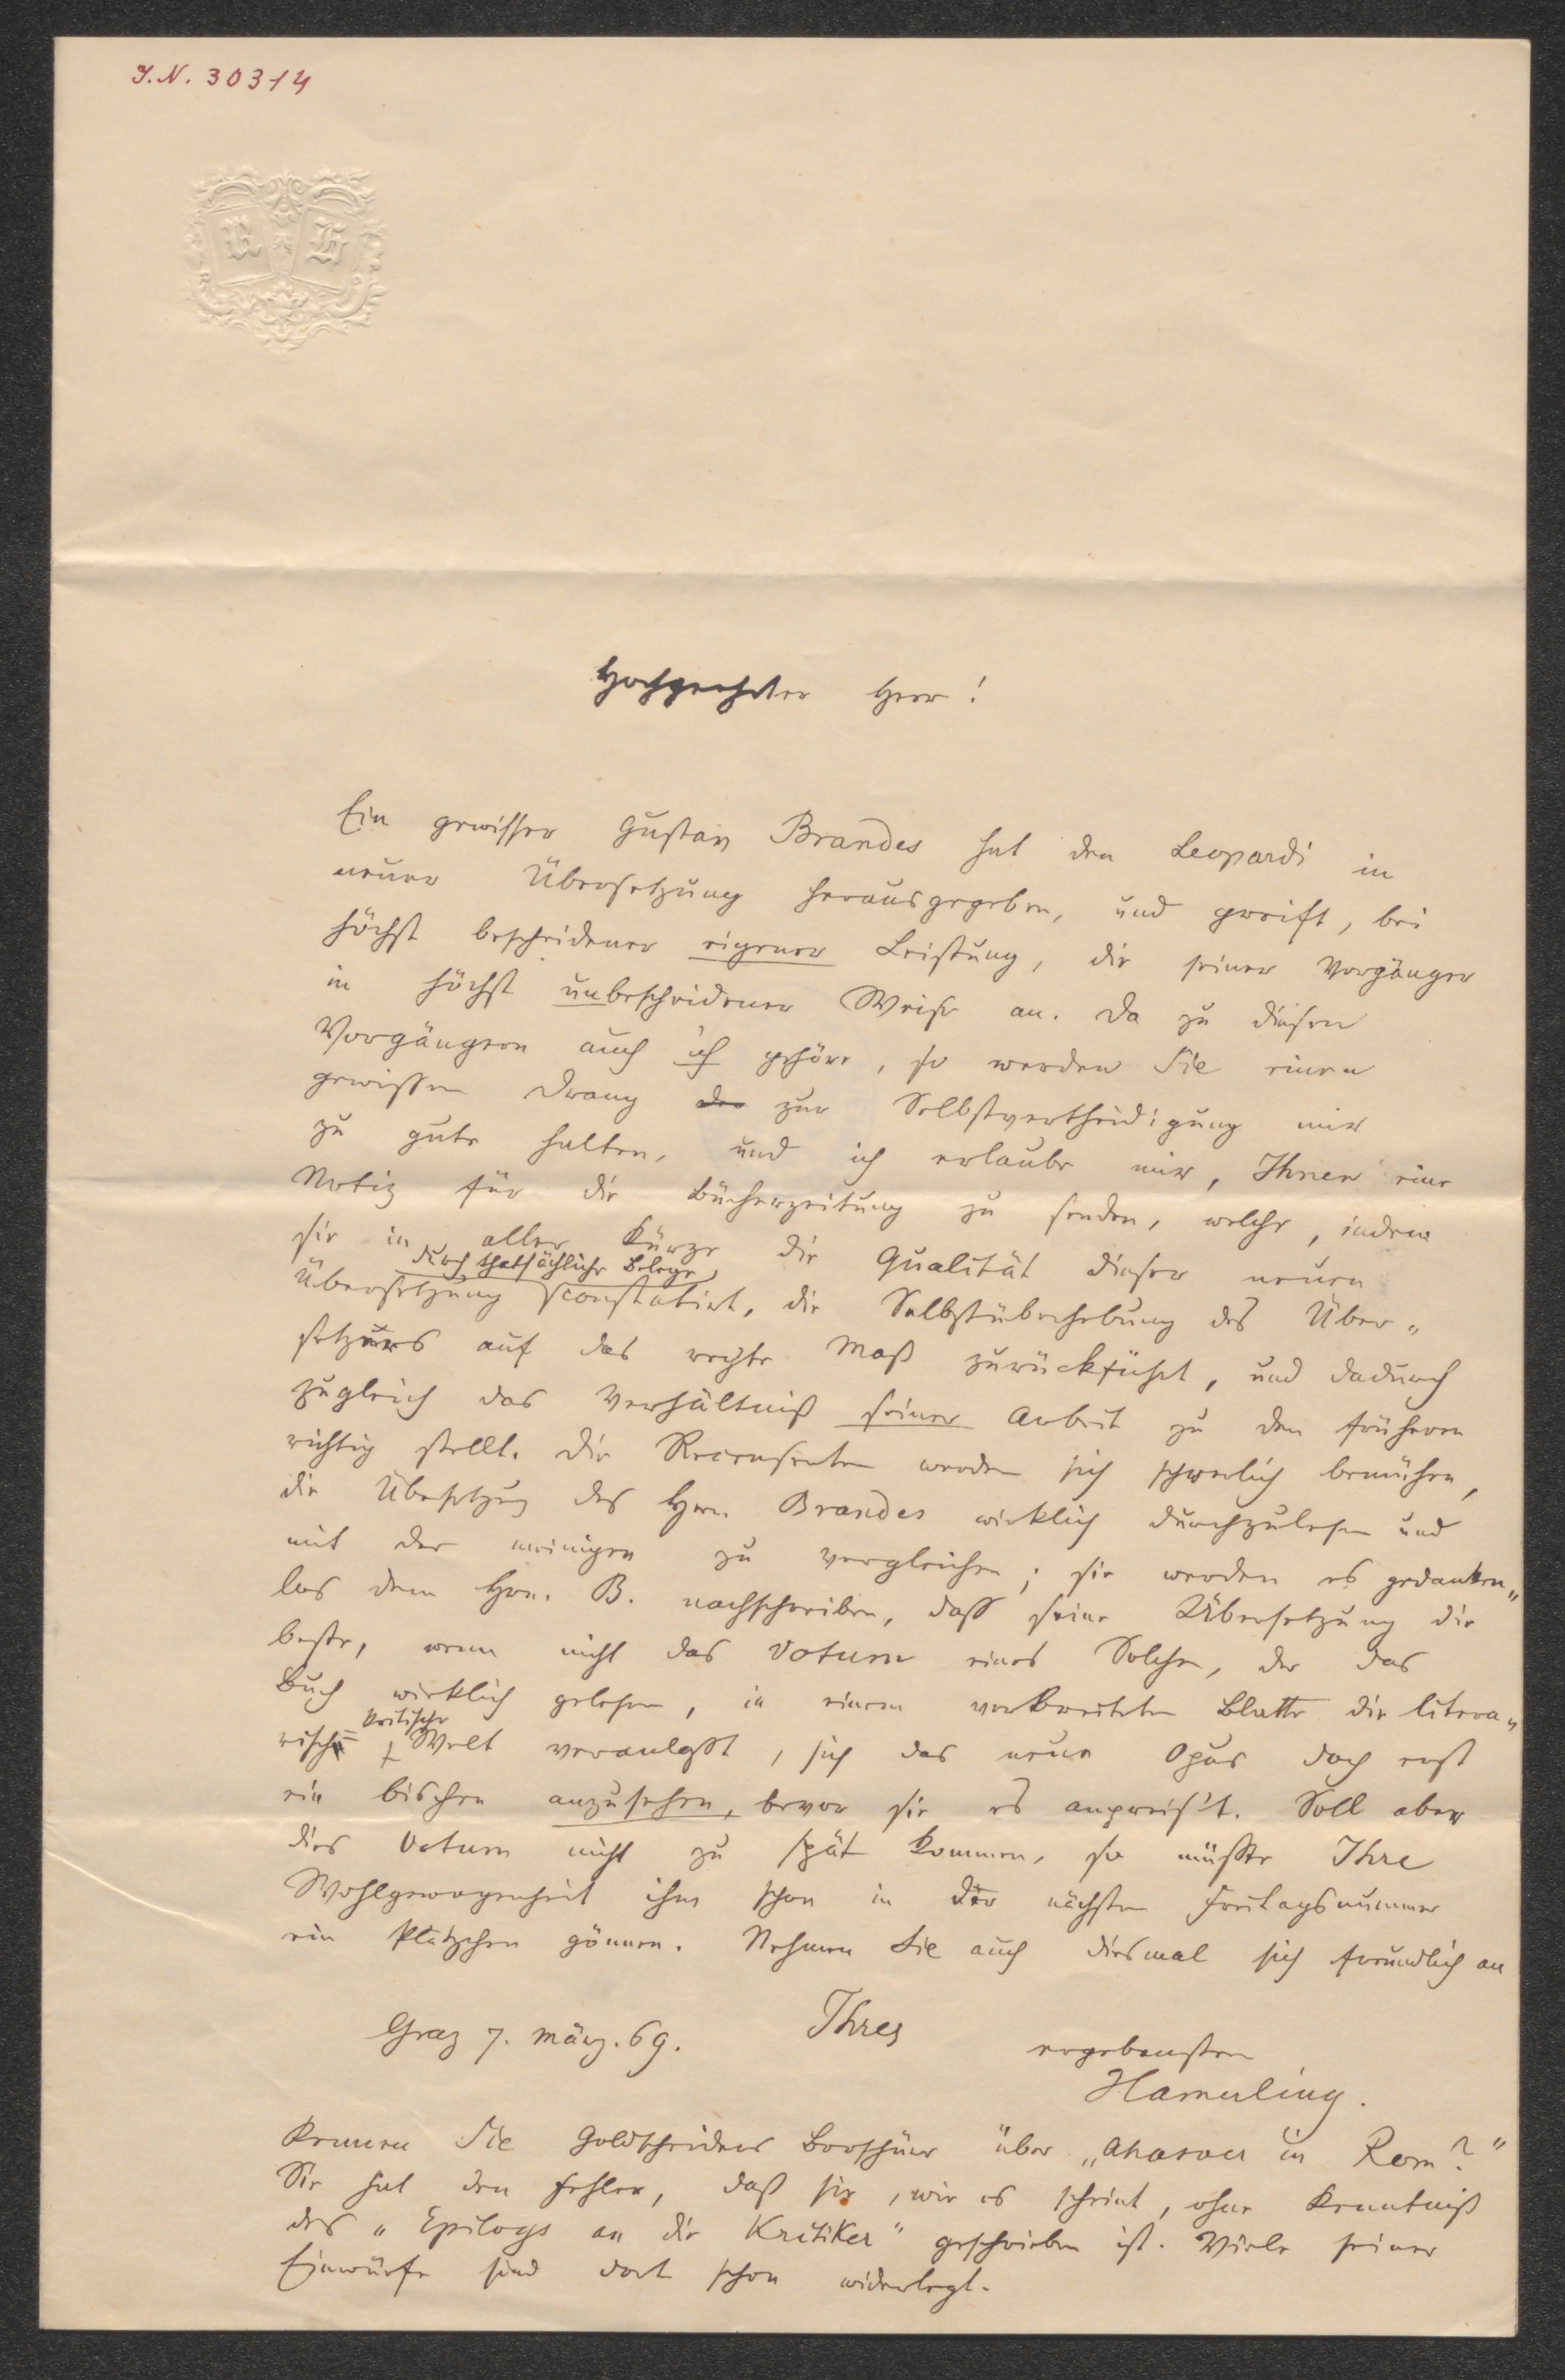 I.N. 30314
R H
Hochgeehrter Herr!
Ein gewisser Gustav Brandes hat den Leopardi in
neuer Übersetzung herausgegeben, und greift, bei
höchst bescheidener eigener Leistung, die seiner Vorgänger
in höchst unbescheidener Weise an. Da zu diesen
Vorgängern auch ich gehöre, so werden Sie einen
gewissen Drang der zur Selbstvertheidigung mir
zu gute halten, und ich erlaube mir, Ihnen eine
Notiz für die Bücherzeitung zu senden, welche, indem
sie in aller Kürze die Qualität dieser neuen
durch thatsächliche Belege
Übersetzung constatirt, die Selbstüberhebung des Über-
setzers auf das rechte Maß zurückführt, und dadurch
zugleich das Verhältniß seiner Arbeit zu den früheren
richtig stellt. Die Recensenten werden sich schwerlich bemühen,
die Übersetzung des Hrn. Brandes wirklich durchzulesen und
mit der meinigen zu vergleichen; sie werden es gedanken-
los dem Hrn. B. nachschreiben, daß seine Übersetzung die
beste, wenn nicht das Votum eines Solchen, der das
Buch wirklich gelesen, in einem verbreiteten Blatte die litera-
kritische
risch Welt veranlaßt, sich das neue Opus doch erst
ein bischen anzusehen, bevor sie es anpreis't. Soll aber
dies Votum nicht zu spät kommen, so müßte Ihre
Wohlgewogenheit ihm schon in der nächsten Freitagsnummer
ein Plätzchen gönnen. Nehmen Sie auch diesmal sich freundlich an
Ihres
Graz 7. März. 69.
ergebensten
Hamerling.
Kennen Sie Goldscheiders Broschüre über „Ahasver in Rom?"
Sie hat den Fehler, daß sie, wie es scheint, ohne Kenntniß
des „Epilogs an die Kritiker" geschrieben ist. Viele seiner
Einwürfe sind dort schon widerlegt.